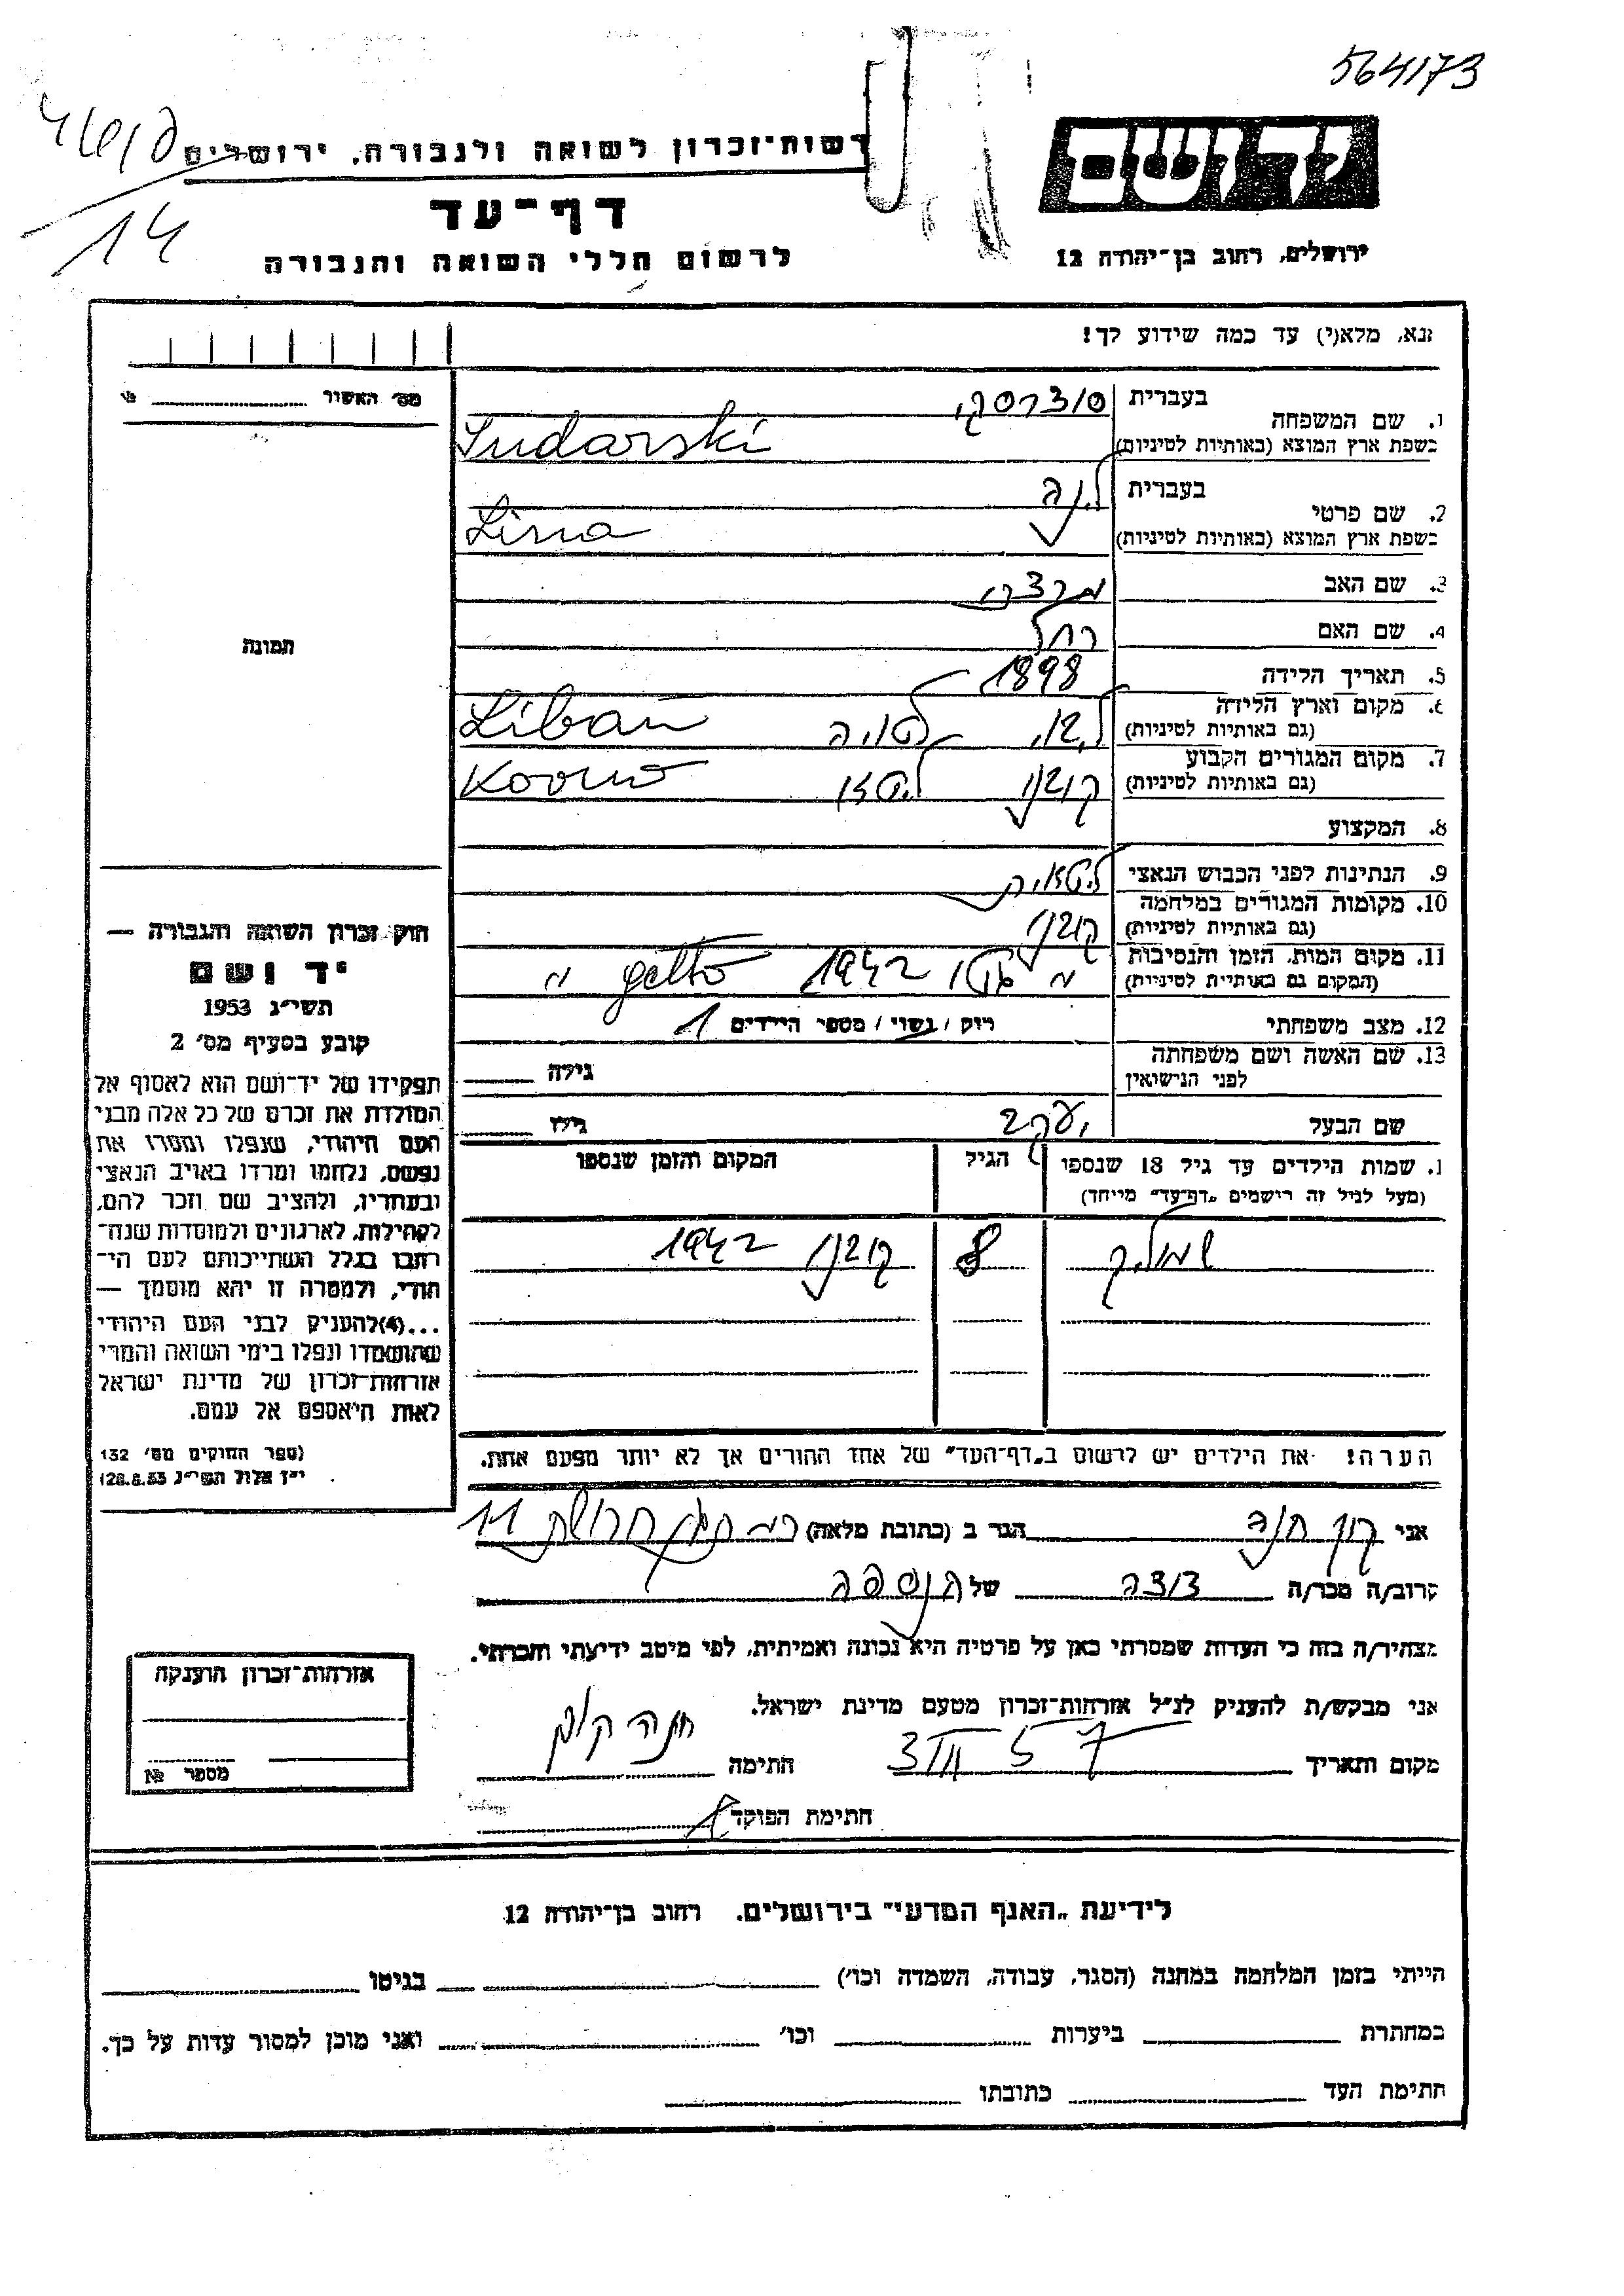 564173
רשות-זכרון לשואה ולגבורה, ירושלים
יד ושם
דף-עד
14
לרשום חללי השואה והגבורה
ירושלים, רחוב בן-יהודה 12
נא, מלא(י) עד כמה שידוע לך!
מס' האשור
בעברית סודרסקי
1. שם המשפחה
בשפת ארץ המוצא (באותיות לטיניות) Sudarski
בעברית לינה
2. שם פרטי
בשפת ארץ המוצא (באותיות לטיניות) Lina
3. שם האב מרדכי
4. שם האם רחל
תמונה
5. תאריך הלידה 1898
6. מקום וארץ הלידה
(גם באותיות לטיניות) לטויה Libau
7. מקום המגורים הקבוע
(גם באותיות לטיניות) קובנו ליטא Kovno
8. המקצוע
9. הנתינות לפני הכבוש הנאצי ליטאית
10. מקומות המגורים במלחמה
(גם באותיות לטיניות) קובנו
11. מקום המות, הזמן והנסיבות
(המקום גם באותיות לטיניות) 1942 getto
12. מצב משפחתי רווק / נשוי / מספר הילדים 1
13. שם האשה ושם משפחתה
לפני הנישואין גילה
שם הבעל יעקב גילו
חוק זכרון השואה והגבורה —
יד ושם
תשי"ג 1953
קובע בסעיף מס' 2
תפקידו של יד-ושם הוא לאסוף אל
המולדת את זכרם של כל אלה מבני
העם היהודי, שנפלו ומסרו את
נפשם, נלחמו ומרדו באויב הנאצי
ובעוזריו, ולהציב שם וזכר להם,
לקהילות, לארגונים ולמוסדות שנח-
רבו בגלל השתייכותם לעם הי-
הודי, ולמטרה זו יהא מוסמך —
...(4)להעניק לבני העם היהודי
שהושמדו ונפלו בימי השואה והמרי
אזרחות-זכרון של מדינת ישראל
לאות היאספם אל עמם.
(ספר החוקים מס' 132
י"ז אלול תשי"ג 28.8.53)
1. שמות הילדים עד גיל 18 שנספו הגיל המקום והזמן שנספו
(מעל לגיל זה רישמים "דף-עד" מייחד)
שמוליק 8 קובנו 1942
הערה! את הילדים יש לרשום ב"דף-העד" של אחד ההורים אך לא יותר מפעם אחת.
אני חנה הגר ב (כתובת מלאה) 11
קרוב/ה מכר/ה דודה של הנספה
מצהיר/ה בזה כי העדות שמסרתי כאן על פרטיה היא נכונה ואמיתית, לפי מיטב ידיעתי והכרתי.
אני מבקש/ת להעניק לנ"ל אזרחות-זכרון מטעם מדינת ישראל.
מקום ותאריך 57 חתימה חנה
חתימת הפוקד
אזרחות-זכרון הוענקה
מספר №
לידיעת "האגף המדעי" בירושלים, רחוב בן-יהודה 12
הייתי בזמן המלחמה במחנה (הסגר, עבודה, השמדה וכו') בגיטו
במחתרת ביערות וכו' ואני מוכן למסור עדות על כך.
חתימת העד כתובתו